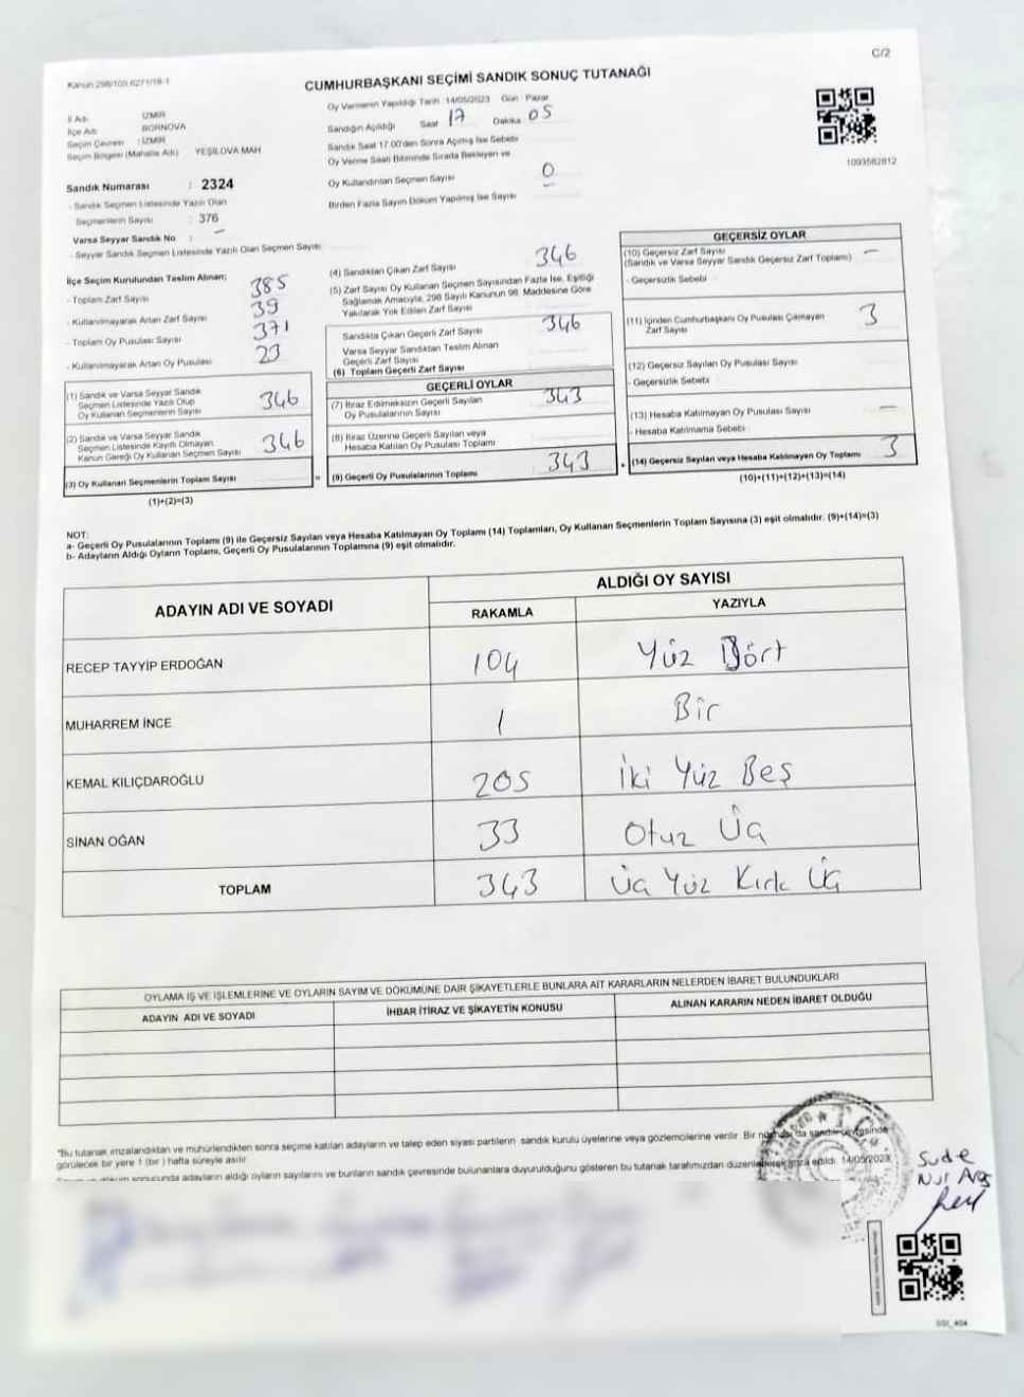 C/2
Kanun 298/105,6271/18-1
CUMHURBAŞKANI SEÇİMİ SANDIK SONUÇ TUTANAĞI
İl Adı : İZMİR
İlçe Adı : BORNOVA
Seçim Çevresi : İZMİR
Seçim Bölgesi (Mahalle Adı) YEŞİLOVA MAH
Sandık Numarası : 2324
- Sandık Seçmen Listesinde Yazılı Olan
Seçmenlerin Sayısı : 376
Varsa Seyyar Sandık No : -
- Seyyar Sandık Seçmen Listesinde Yazılı Olan Seçmen Sayısı
Oy Vermenin Yapıldığı Tarih :14/05/2023 Gün : Pazar
Sandığın Açıldığı Saat 17 Dakika 05
Sandık Saat 17.00'den Sonra Açılmış İse Sebebi
Oy Verme Saati Bitiminde Sırada Bekleyen ve
Oy Kullandırılan Seçmen Sayısı 0
Birden Fazla Sayım Döküm Yapılmış İse Sayısı -
1093582812
İlçe Seçim Kurulundan Teslim Alınan;
- Toplam Zarf Sayısı 385
- Kullanılmayarak Artan Zarf Sayısı 39
- Toplam Oy Pusulası Sayısı 371
- Kullanılmayarak Artan Oy Pusulası 23
(1) Sandık ve Varsa Seyyar Sandık
Seçmen Listesinde Yazılı Olup
Oy Kullanan Seçmenlerin Sayısı 346
(2) Sandık ve Varsa Seyyar Sandık
Seçmen Listesinde Kayıtlı Olmayan
Kanun Gereği Oy Kullanan Seçmen Sayısı 346
(3) Oy Kullanan Seçmenlerin Toplam Sayısı =
(1)+(2)=(3)
(4) Sandıktan Çıkan Zarf Sayısı 346
(5) Zarf Sayısı Oy Kullanan Seçmen Sayısından Fazla İse, Eşitliği
Sağlamak Amacıyla, 298 Sayılı Kanunun 98. Maddesine Göre
Yakılarak Yok Edilen Zarf Sayısı
Sandıkta Çıkan Geçerli Zarf Sayısı 346
Varsa Seyyar Sandıktan Teslim Alınan
Geçerli Zarf Sayısı
(6) Toplam Geçerli Zarf Sayısı
GEÇERLİ OYLAR
(7) İtiraz Edilmeksizin Geçerli Sayılan
Oy Pusulalarının Sayısı 343
(8) İtiraz Üzerine Geçerli Sayılan veya
Hesaba Katılan Oy Pusulası Toplamı
(9) Geçerli Oy Pusulalarının Toplamı 343 +
GEÇERSİZ OYLAR
(10) Geçersiz Zarf Sayısı
(Sandık ve Varsa Seyyar Sandık Geçersiz Zarf Toplamı) -
- Geçersizlik Sebebi
(11) İçinden Cumhurbaşkanı Oy Pusulası Çıkmayan
Zarf Sayısı 3
(12) Geçersiz Sayılan Oy Pusulası Sayısı
- Geçersizlik Sebebi
(13) Hesaba Katılmayan Oy Pusulası Sayısı -
- Hesaba Katılmama Sebebi
(14) Geçersiz Sayılan veya Hesaba Katılmayan Oy Toplamı 3
(10)+(11)+(12)+(13)=(14)
NOT:
a- Geçerli Oy Pusulalarının Toplamı (9) ile Geçersiz Sayılan veya Hesaba Katılmayan Oy Toplamı (14) Toplamları, Oy Kullanan Seçmenlerin Toplam Sayısına (3) eşit olmalıdır. (9)+(14)=(3)
b- Adayların Aldığı Oyların Toplamı, Geçerli Oy Pusulalarının Toplamına (9) eşit olmalıdır.
ADAYIN ADI VE SOYADI
ALDIĞI OY SAYISI
RAKAMLA YAZIYLA
RECEP TAYYİP ERDOĞAN 104 Yüz Dört
MUHARREM İNCE 1 Bir
KEMAL KILIÇDAROĞLU 205 İki Yüz Beş
SİNAN OĞAN 33 Otuz Üç
TOPLAM 343 Üç Yüz Kırk Üç
OYLAMA İŞ VE İŞLEMLERİNE VE OYLARIN SAYIM VE DÖKÜMÜNE DAİR ŞİKAYETLERLE BUNLARA AİT KARARLARIN NELERDEN İBARET BULUNDUKLARI
ADAYIN ADI VE SOYADI İHBAR İTİRAZ VE ŞİKAYETİN KONUSU ALINAN KARARIN NEDEN İBARET OLDUĞU
"Bu tutanak imzalandıktan ve mühürlendikten sonra seçime katılan adayların ve talep eden siyasi partilerin sandık kurulu üyelerine veya gözlemcilerine verilir. Bir nüshası da sandık çevresinde
görülecek bir yere 1 (bir) hafta süreyle asılır.
sonucunda adayların aldığı oyların sayılarını ve bunların sandık çevresinde bulunanlara duyurulduğunu gösteren bu tutanak tarafımızdan düzenlenerek imza edildi. 14/05/2023
Sude
Nur